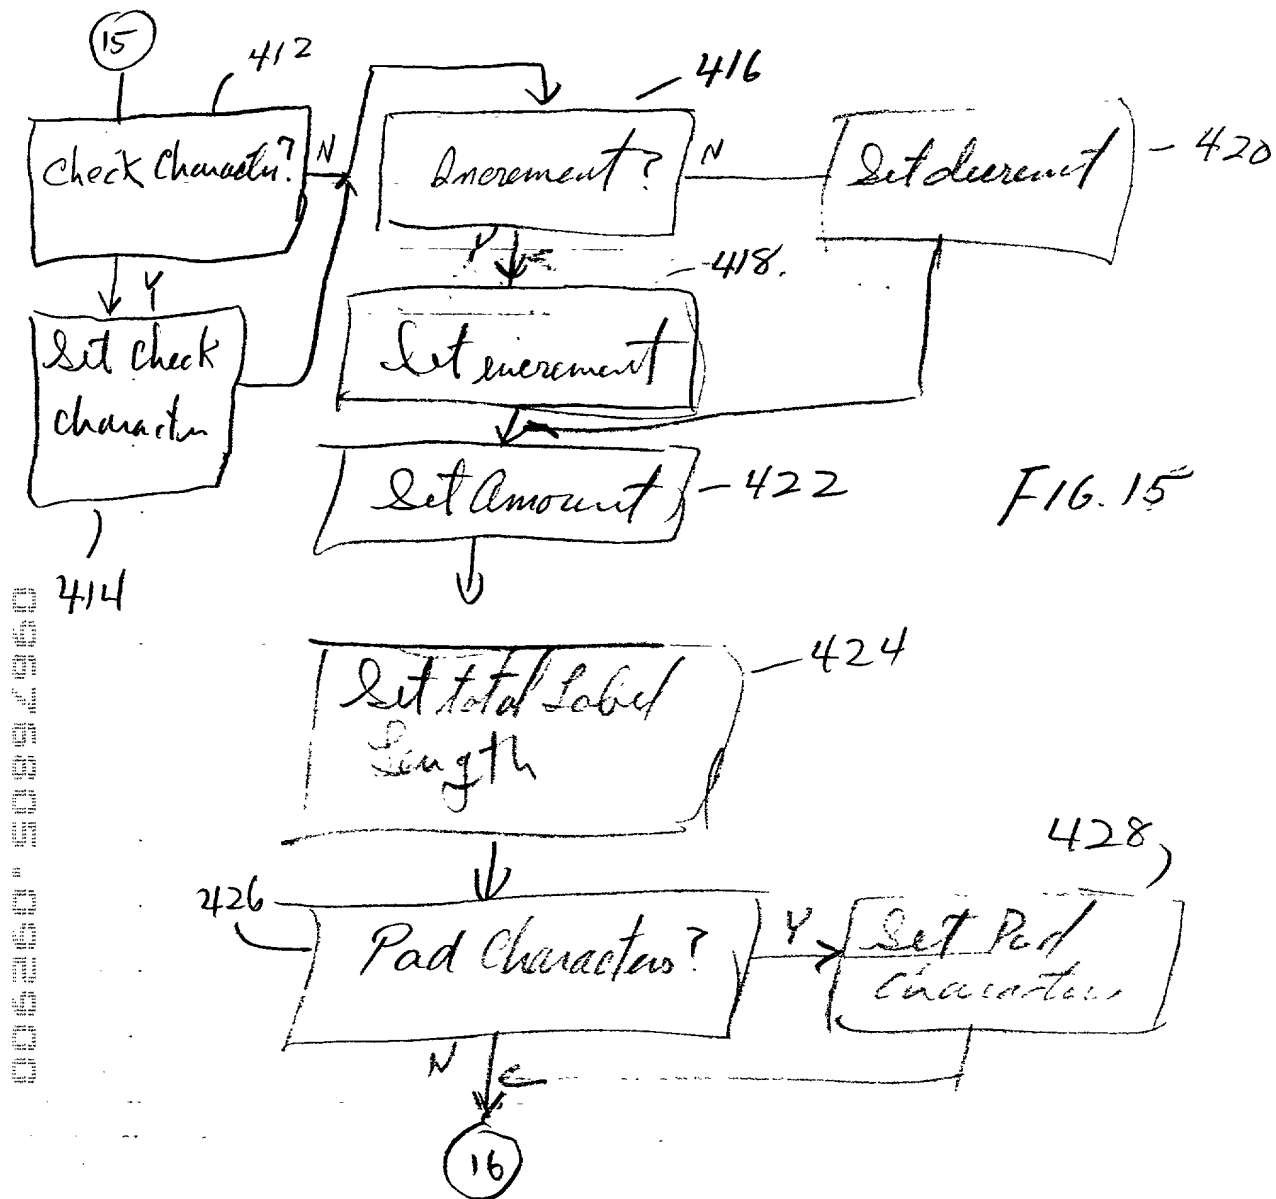 15
412
Check Character?
N
Y
Set Check
Character
414
416
Increment?
N
Y
Set decrement
420
418.
Set increment
Set Amount
422
FIG. 15
Set total Label
Length
424
426
Pad Characters?
Y
N
Set Pad
Characters
428
16